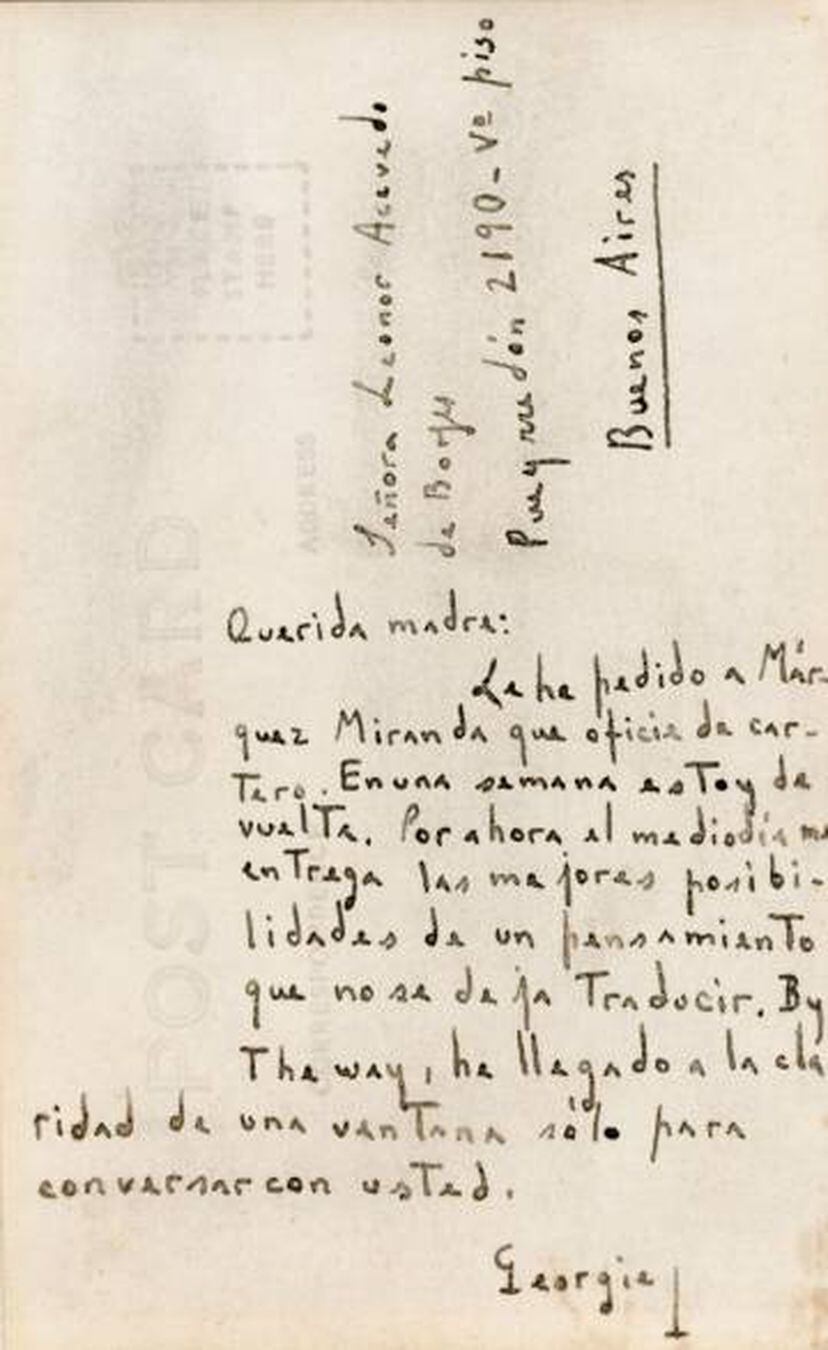 Señora Leonor Acevedo
de Borges
Pueyrredón 2190 - Vº piso
Buenos Aires
Querida madre:
Le he pedido a Már-
quez Miranda que oficie de car-
tero. En una semana estoy de
vuelta. Por ahora el mediodía me
entrega las mejores posibi-
lidades de un pensamiento
que no se deja traducir. By
the way, he llegado a la cla
ridad de una ventana sólo para
conversar con usted.
Georgie
POST CARD
ADDRESS
PLACE
STAMP
HERE